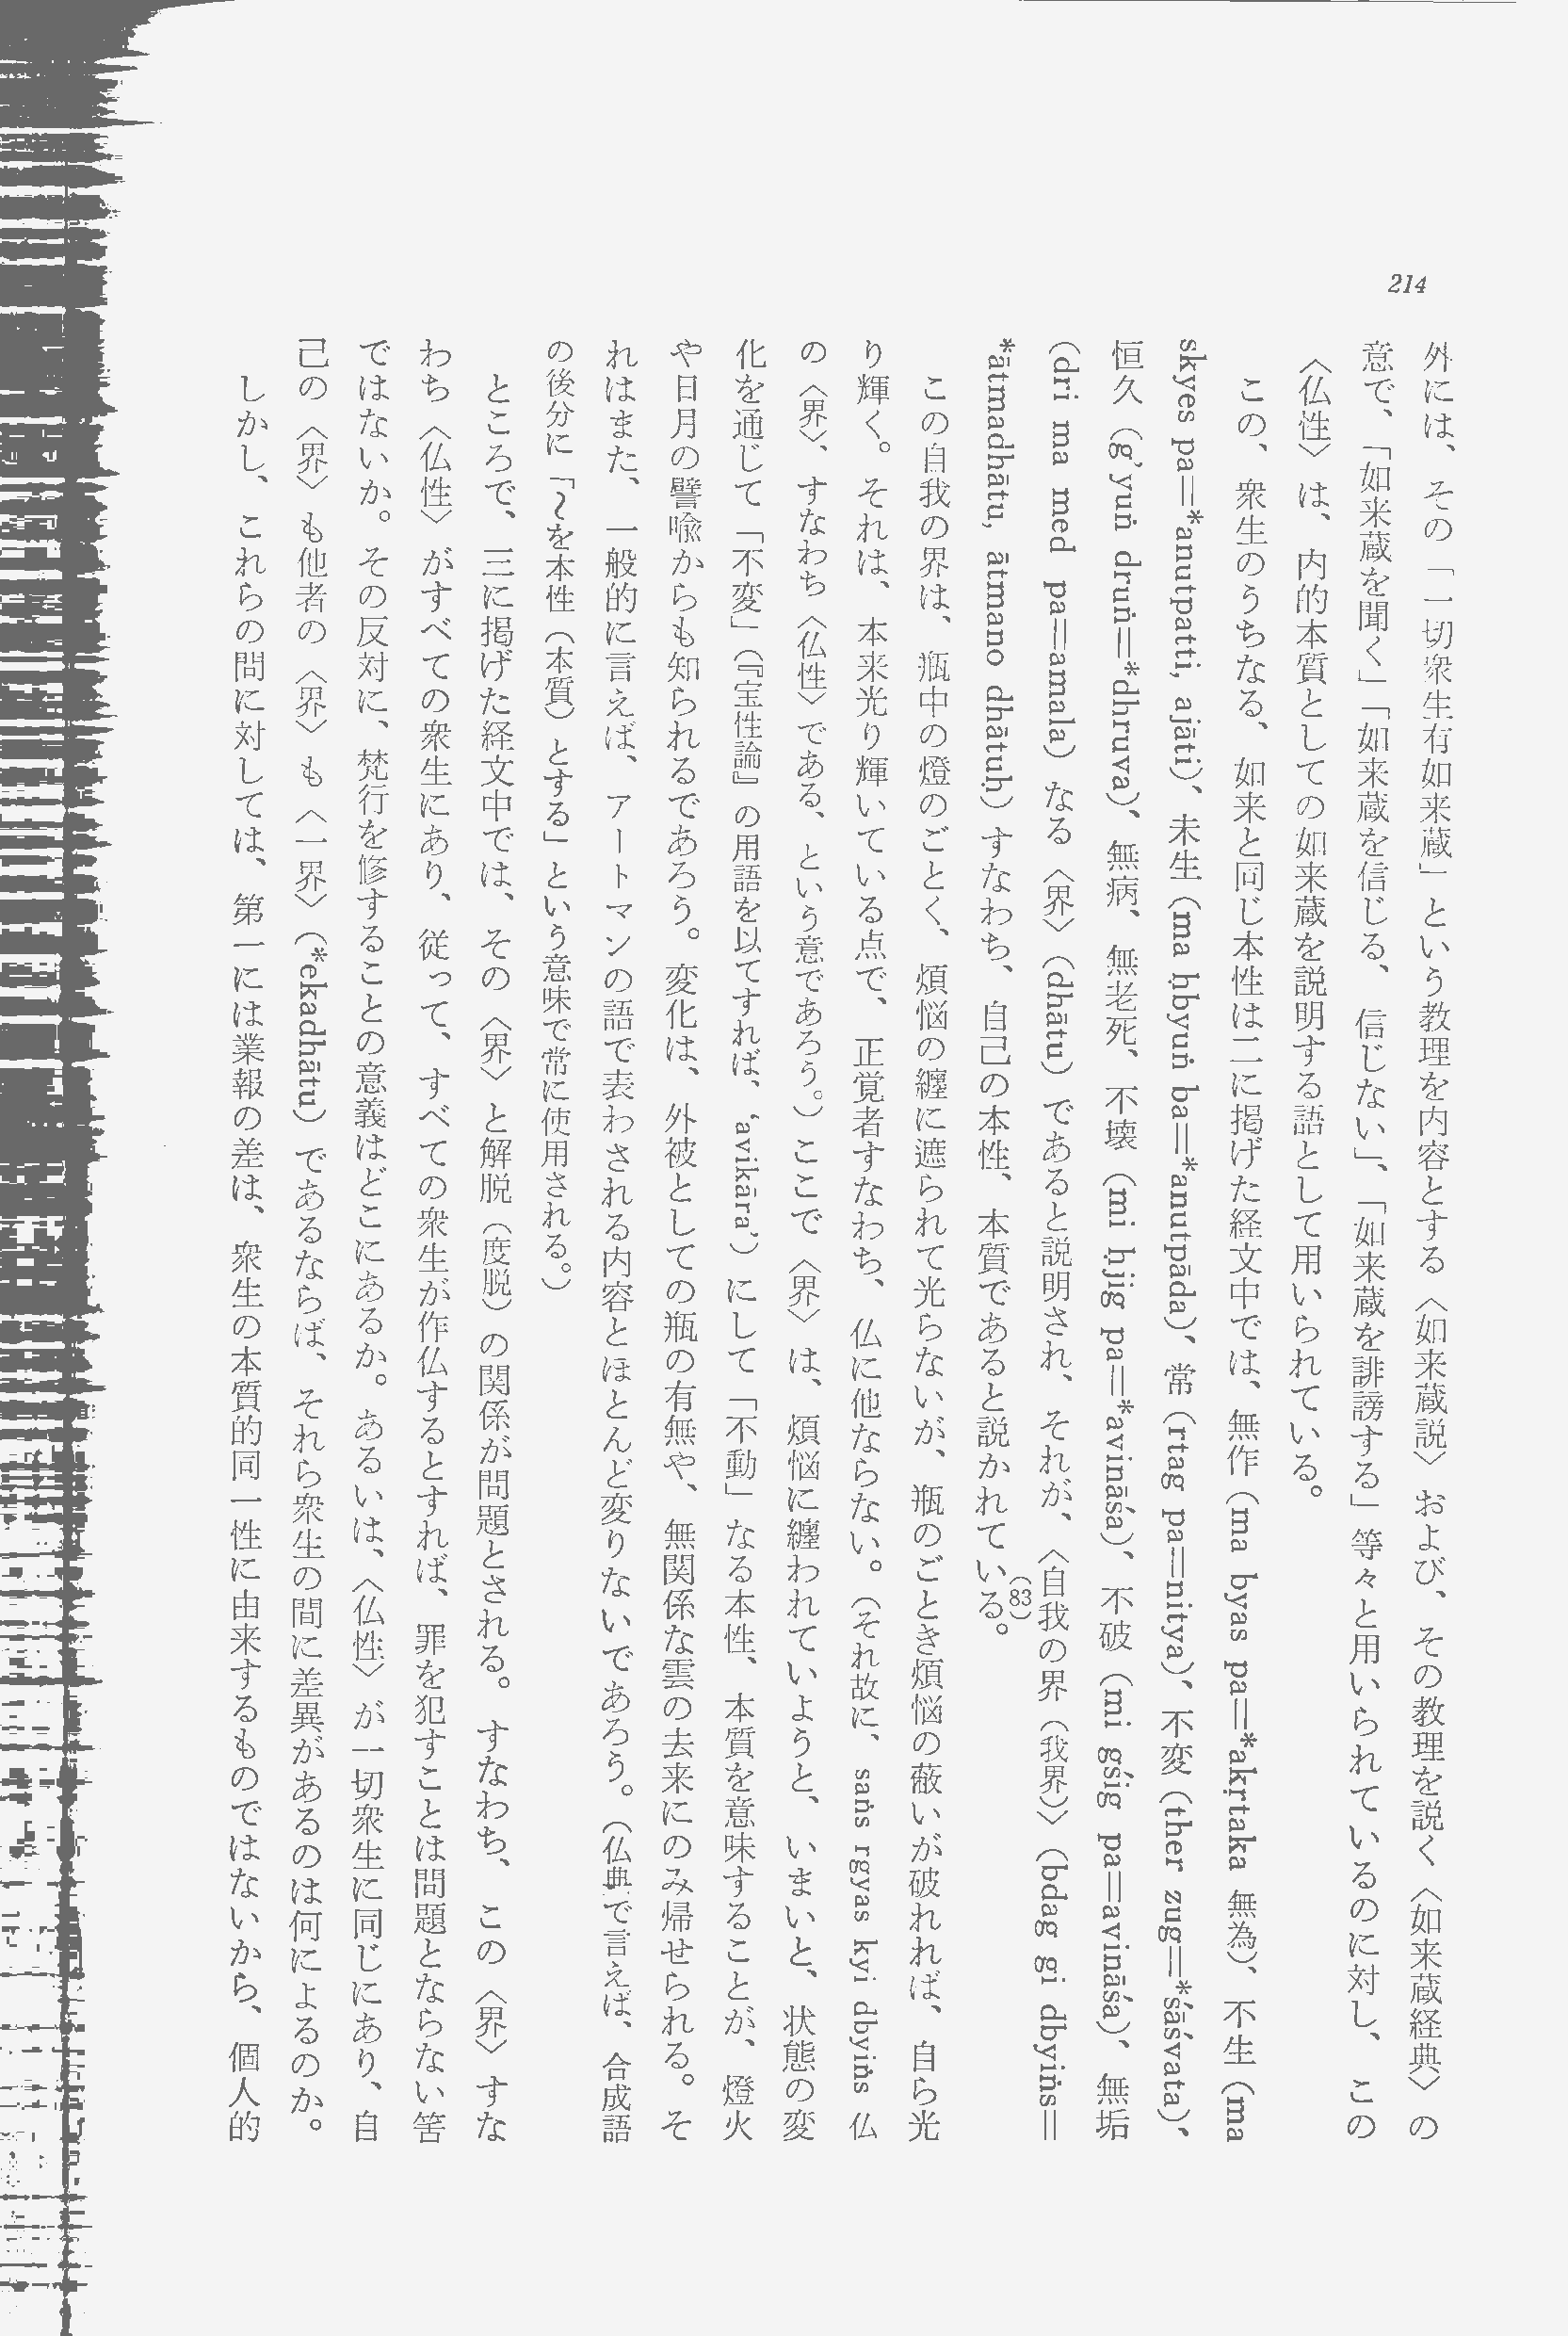 214
外には、その「一切衆生有如来蔵」という教理を内容とする〈如来蔵説〉および、その教理を説く〈如来蔵経典〉の
意で、「如来蔵を聞く」「如来蔵を信じる、信じない」、「如来蔵を誹謗する」等々と用いられているのに対し、この
〈仏性〉は、内的本質としての如来蔵を説明する語として用いられている。
この、衆生のうちなる、如来と同じ本性は二に掲げた経文中では、無作(ma byas pa=*akṛtaka 無為)、不生(ma
skyes pa=*anutpatti, ajāti)、未生(ma ḥbyuṅ ba=*anutpāda)、常(rtag pa=nitya)、不変(ther zug=*śāśvata)、
恒久(g'yuṅ druṅ=*dhruva)、無病、無老死、不壊(mi ḥjig pa=*avināśa)、不破(mi gśig pa=avināśa)、無垢
(dri ma med pa=amala)なる〈界〉(dhātu)であると説明され、それが、〈自我の界(我界)〉(bdag gi dbyiṅs=
*ātmadhātu, ātmano dhātuḥ)すなわち、自己の本性、本質であると説かれている。(83)
この自我の界は、瓶中の燈のごとく、煩悩の纏に遮られて光らないが、瓶のごとき煩悩の蔽いが破れれば、自ら光
り輝く。それは、本来光り輝いている点で、正覚者すなわち、仏に他ならない。(それ故に、saṅs rgyas kyi dbyiṅs 仏
の〈界〉、すなわち〈仏性〉である、という意であろう。)ここで〈界〉は、煩悩に纏われていようと、いまいと、状態の変
化を通じて「不変」(『宝性論』の用語を以てすれば、‘avikāra’)にして「不動」なる本性、本質を意味することが、燈火
や日月の譬喩からも知られるであろう。変化は、外被としての瓶の有無や、無関係な雲の去来にのみ帰せられる。そ
れはまた、一般的に言えば、アートマンの語で表わされる内容とほとんど変りないであろう。(仏典で言えば、合成語
の後分に「〜を本性(本質)とする」という意味で常に使用される。)
ところで、三に掲げた経文中では、その〈界〉と解脱(度脱)の関係が問題とされる。すなわち、この〈界〉すな
わち〈仏性〉がすべての衆生にあり、従って、すべての衆生が作仏するとすれば、罪を犯すことは問題とならない筈
ではないか。その反対に、梵行を修することの意義はどこにあるか。あるいは、〈仏性〉が一切衆生に同じにあり、自
己の〈界〉も他者の〈界〉も〈一界〉(*ekadhātu)であるならば、それら衆生の間に差異があるのは何によるのか。
しかし、これらの問に対しては、第一には業報の差は、衆生の本質的同一性に由来するものではないから、個人的